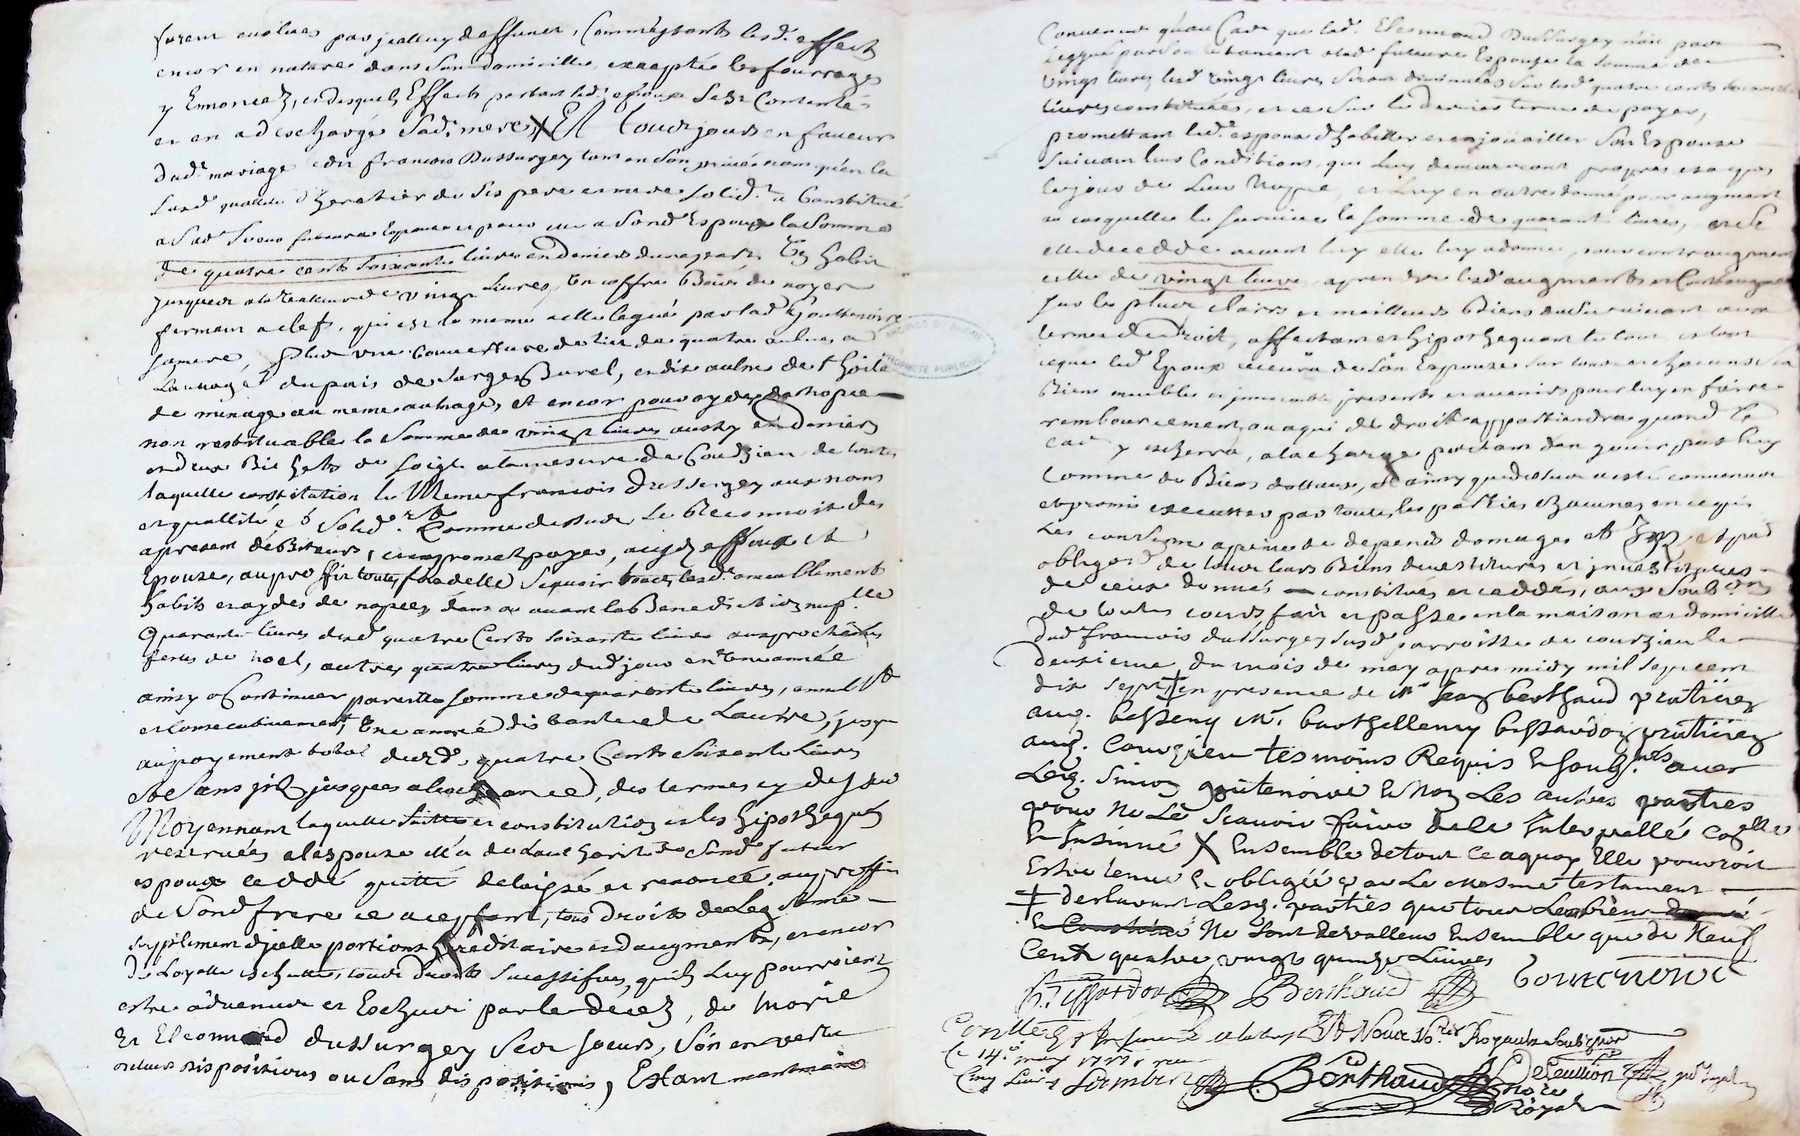 furent evalués par icelluy deffunct, Comme estants lesd. effects
encor en nature dans son domicille, excepté les fourrages
y Ennoncez, et desquels Effects partant led. epoux s'est Contenté
et en a deschargé sad. mere, X Et toudjours en faveur
dud. mariage led. françois Dussurgey tant en son privé nom qu'en la
susd. qualité d'heretier de ses pere et mere solid.t a Constitué
a sad. soeur future Espouse et pour elle a sond. Espoux la Somme
de quatre cents soixante livres en deniers
jusques a la valleur de vingt livres, Un coffre Bois de noyer
fermant a clef, qui est le meme a elle legué par lad. Goutenoire
sa mere, plus une Couverture de lit de quatre aulnes a
l'aunage du païs de sarge Burel, et dix aulnes de thoile
de menage au meme aulnage, et encor pour aydes de nopce
non restituable la Somme de vingt livres aussy en deniers
et deux Bichets de soigle a la mesure de Coudzieu, de toute
laquelle constitution le Meme françois Dussurgey aux noms
et quallité et Solid. comme dessus se Reconnoit des
a present debiteur, et a promet payer, auxd. Epoux et
Epouse, au proffit toutesfois d'elle sçavoir tous lesd. ameublements
habits et aydes de nopces, dans ou avant la Benediction nup.lle
Quarante livres desd. quatre Cents soixante livres aux prochaines
festes de noel, autres quarante livres dud. jour en Une année
ainsy a Continuer pareille somme de quarante livres, annuell.t
et consecutivement, Une année distante de L'autre, jusqu
au payement total desd. quatre Cents Soixante livres
et Sans jnt. jusques a l'escheance, des termes cy dessus
Moyennant laquelle constitution et les hipotheques
reservées a l'espouse elle a de L'authorité de Sond. futur
espoux ceddé quitté delaissé et renoncé, au proffit
de Sond. frere ce acceptant, tous Droits de Leg.
supplement d'jcelle portions hereditaires et d'augments, et encor
de Loyalle eschutte, tous droits successifs, qu'ils Luy pourroient
estre advenus et Eschus par le decez, de Marie
Et Eleonord Dussurgey Ses soeurs, Soit en vertu
de leurs dispositions ou Sans dispositions, Estant
Convenu qu'au Cas que lad. Eleonord Dussurgey n'ait pas
legué par son testament a lad. future Espouse la somme de
vingt livres lesd. vingt livres seront diminuées sur lesd. quatre cents soixante
livres constituées, et ce sur le dernier terme de payer,
promettant led. espoux d'habiller et enjoüailler son Espouse
suivant leurs Conditions, que luy demeureront propres et acquis
le jour de leur Nopce, et luy en outre donne pour augment
en cas qu'elle le survive la somme de quarante livres, et si
elle decedde avant luy elle luy donne, pour contraugment
celle de vingt livres, a prendre lesd. augments et Contraugments
sur les plus clairs et meilleurs Biens du survivant aux
termes de Droit, affectant et hipothequant le tout et tout
ce que led. Epoux recevra de son Espouse sur tous et chacuns ses
Biens meubles et jmmeubles presents et avenirs pour luy en faire
remboursement ou a qui de droit appartiendra quand le
cas y escherra, a la charge pourtant d'en jouir par luy
Comme de Biens dottaux, et ainsy que dessus a esté convenu
et promis executter par toutes les parties chacunes en ce qui
les concerne a peine de depens domages et jnt. et par
obliga.on de tous leurs Biens
de ceux donnés constitués et ceddés, aux Soub.ons
de toutes cours fait et passé en la maison et domicille
dud. françois Dussurgey susd. parroisse de courzieu le
deuzieme du mois de may apres midy mil sept cent
dix sept, en presence de M.r Jean berthaud praticien
aud. bessenay M.r barthellemy bissardon praticien
aud. Courzieu tesmoins Requis et soubz.nés avec
Led. Simon goutenoire et Non Les autres parties
pour Ne Le sçavoir faire de le Interpellé
Et Insinué X Ensemble de tout ce a quoy Elle pouvoit
Estre tenue et obligée par Le mesme testament
+ declarant Lesd. parties que tous Les biens
Ne sont de valleur Ensemble que de Neuf
Cents quatre vingt quinze Livres
Bissardon Berthaud Goutenoire
Con.llé
Ce 14.e may 1717 reçu
Cinq Livres Lambert
Berthaud
No.re
Royal